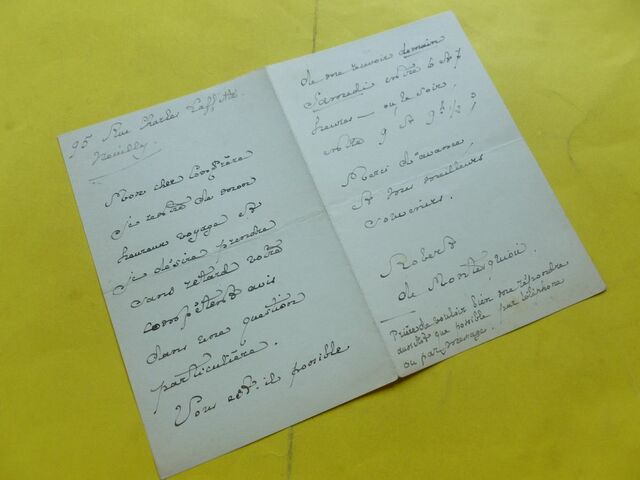 95 Rue Charles Laffitte.
Neuilly.
Mon cher Confrère
je rentre de mon
heureux voyage et
je désire prendre
sans retard votre
compétent avis
dans une question
particulière.
Vous est-il possible
de me recevoir demain
Samedi entre 6 et 7
heures — ou le soir,
entre 9 et 9h 1/2 ?
Merci d'avance
et mes meilleurs
souvenirs.
Robert
de Montesquiou.
Prière de vouloir bien me répondre
aussitôt que possible par téléphone
ou par message.